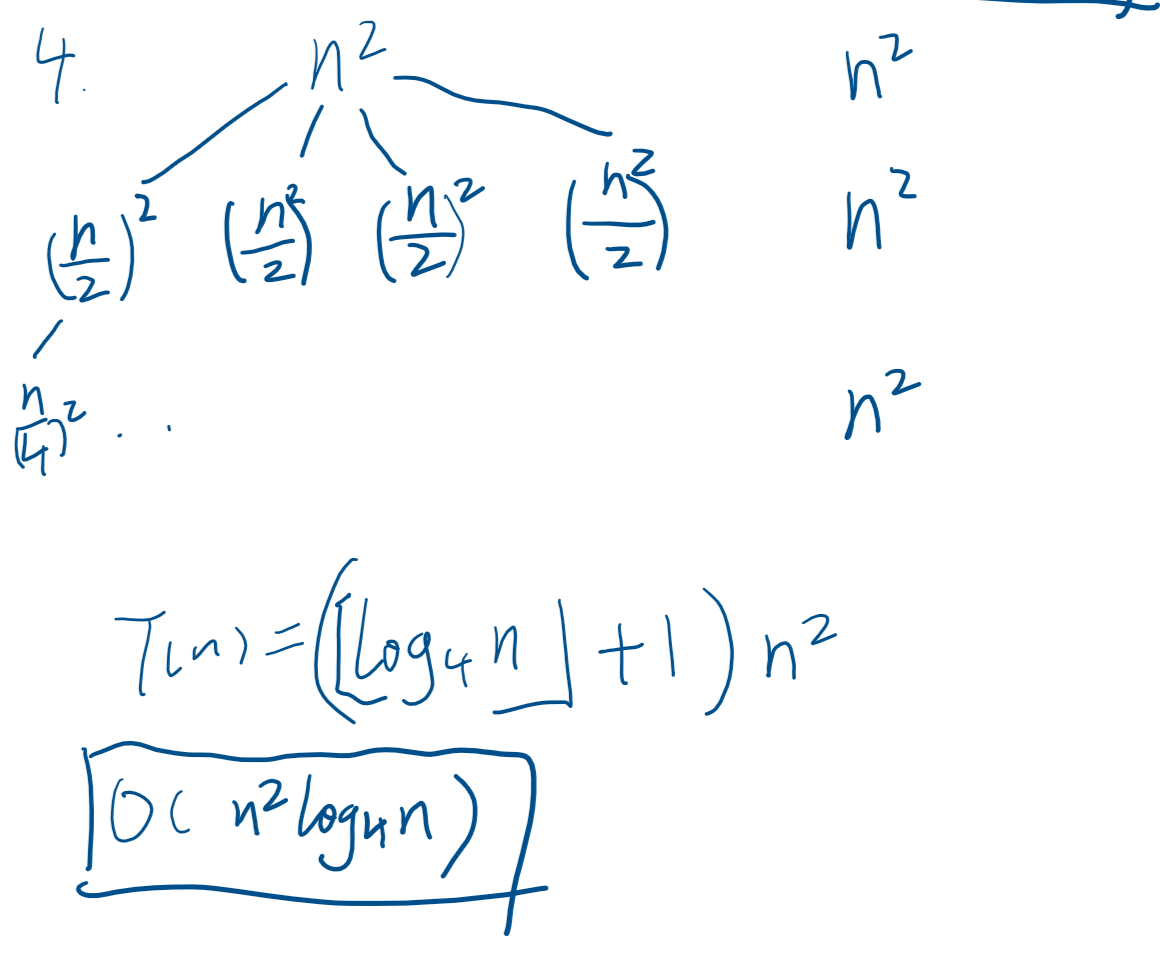 4. n² n²
(n/2)² (n²/2) (n/2)² (n²/2) n²
(n/4)² . . n²
T(n) = (⌊log₄ n⌋ + 1) n²
O( n² log₄ n )